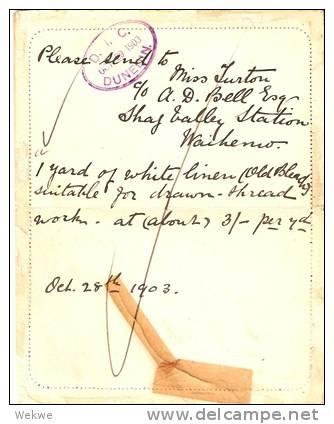 D.I.C.
1903
DUNEDIN.
Please send to
Miss Turton
c/o A. D. Bell Esq
Shag Valley Station
Waihemo.
1 yard of white linen (Old Bleach)
suitable for drawn-thread
work - at (about) 3/- per yd
Oct. 28th 1903.
Wekwe
www.delcampe.net